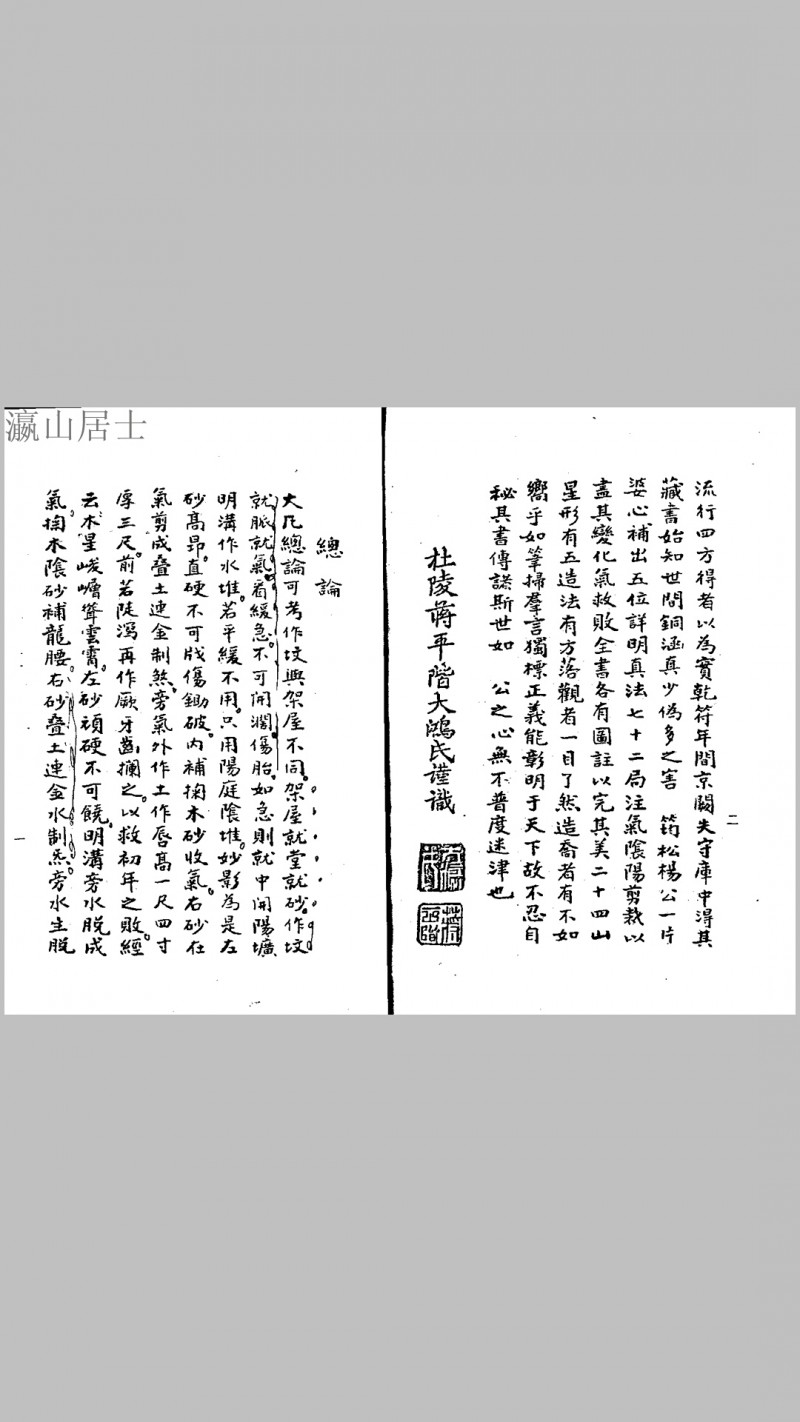 瀛山居士
二
流行四方得者以為寳乾符年間京闕失守庫中得其
藏書始知世間銅涵真少偽多之害 筠松楊公一片
婆心補出五位詳明真法七十二局注氣陰陽剪裁以
盡其變化氣救敗全書各有圖註以完其美二十四山
星形有五造法有方落觀者一目了然造喬者有不如
嚮乎如筆掃羣言獨標正義能彰明于天下故不忍自
秘其書傳諸斯世如 公之心無不普度迷津也
杜陵蔣平階大鴻氏謹識
總論
大凡總論可考作坟與架屋不同。架屋就堂就砂。作坟
就脈就氣。看緩急。不可開濶傷胎。如急則就中開陽壙
明溝作水堆。若平緩不用。只用陽庭陰堆。妙影為是左
砂髙昂。直硬不可戕傷鋤破。内補掏木砂收氣。右砂在
氣剪成叠土連金制煞。旁氣外作土作唇髙一尺四寸
厚三尺。前若陡瀉再作厥牙齒攔之。以救初年之敗。經
云木星峻嶒聳雲霄。左砂頑硬不可饒。明溝旁水脱成
氣。掏木陰砂補龍腰。右砂叠土連金水制炁。旁水生脱
一